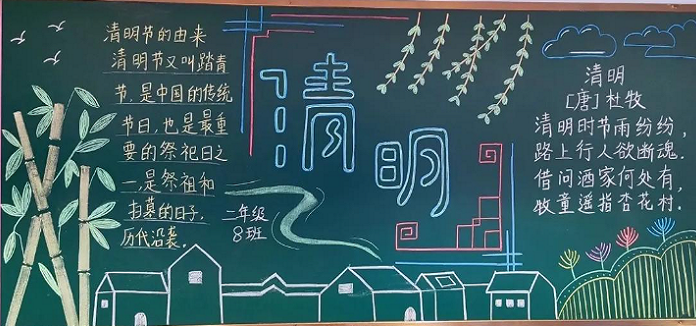 清明节的由来
清明节又叫踏青
节,是中国的传统
节日,也是最重
要的祭祀日之
一,是祭祖和
扫墓的日子,
历代沿袭.
二年级
8班
清明
清明
[唐]杜牧
清明时节雨纷纷,
路上行人欲断魂.
借问酒家何处有,
牧童遥指杏花村.